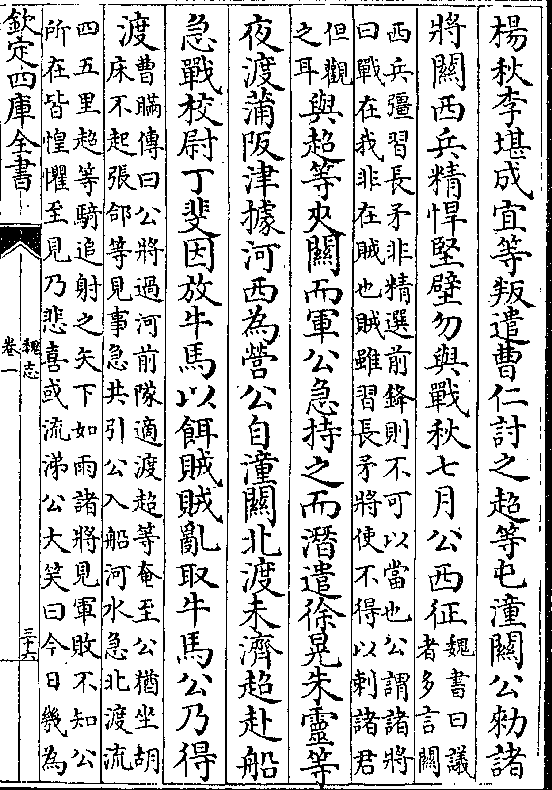 楊秋李堪成宜等叛遣曹仁討之超等屯潼關公勑諸
將關西兵精悍堅壁勿與戰秋七月公西征
魏書曰議
者多言關
西兵彊習長矛非精選前鋒則不可以當也公謂諸將
曰戰在我非在賊也賊雖習長矛將使不得以刺諸君
但觀
之耳
與超等夾關而軍公急持之而潛遣徐晃朱靈等
夜渡蒲阪津據河西為營公自潼關北渡未濟超赴船
急戰校尉丁斐因放牛馬以餌賊賊亂取牛馬公乃得
渡
曹瞞傳曰公將過河前隊適渡超等奄至公猶坐胡
床不起張郃等見事急共引公入船河水急北渡流
四五里超等騎追射之矢下如雨諸將見軍敗不知公
所在皆惶懼至見乃悲喜或流涕公大笑曰今日幾為
欽定四庫全書
魏志
卷一
三十六